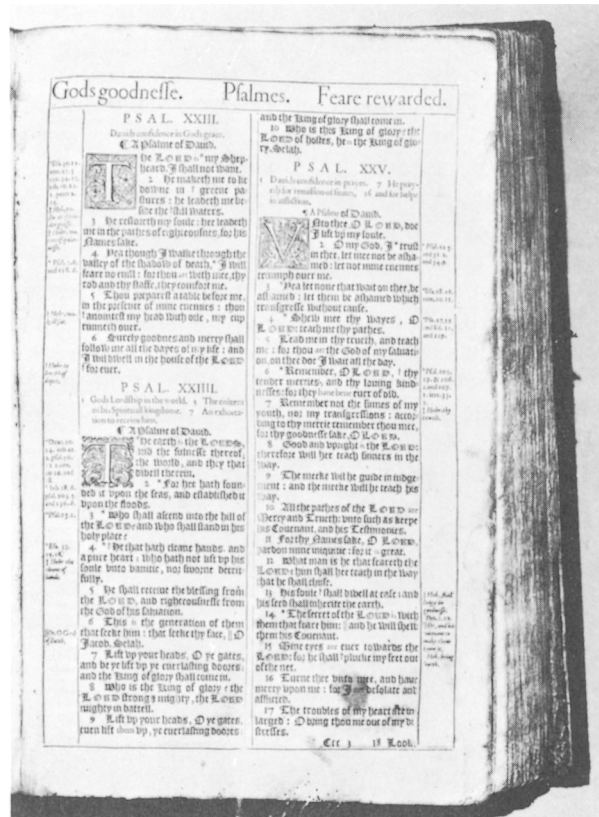 Gods goodnesse. Psalmes. Feare rewarded.
PSAL. XXIII.
Dauids confidence in Gods grace.
¶ A Psalme of Dauid.
The LORD is my Shep-
heard, I shall not want.
2 He maketh me to lie
downe in greene pa-
stures: he leadeth me be-
side the still waters.
3 He restoreth my soule: he leadeth
me in the pathes of righteousnes, for his
Names sake.
4 Yea though I walke through the
valley of the shadow of death, I will
feare no euill: for thou art with me, thy
rod and thy staffe, they comfort me.
5 Thou preparest a table before me,
in the presence of mine enemies: thou
anointest my head with oile, my cup
runneth ouer.
6 Surely goodnes and mercy shall
follow me all the dayes of my life: and
I will dwell in the house of the LORD
for euer.
PSAL. XXIIII.
1 Gods Lordship in the world. 3 The citizens
of his Spirituall kingdome. 7 An exhorta-
tion to receiue him.
¶ A Psalme of Dauid.
The earth is the LORDS,
and the fulnesse thereof,
the world, and they that
dwell therein.
2 For he hath foun-
ded it vpon the seas, and established it
vpon the floods.
3 Who shall ascend into the hill of
the LORD? and who shall stand in his
holy place?
4 He that hath cleane hands, and
a pure heart; who hath not lift vp his
soule vnto vanitie, nor sworne deceit-
fully.
5 He shall receiue the blessing from
the LORD, and righteousnesse from
the God of his saluation.
6 This is the generation of them
that seeke him: that seeke thy face, O
Jacob. Selah.
7 Lift vp your heads, O ye gates,
and be ye lift vp ye euerlasting doores;
and the King of glory shall come in.
8 Who is this King of glory? the
LORD strong & mighty, the LORD
mighty in battell.
9 Lift vp your heads, O ye gates,
euen lift them vp, ye euerlasting doores;
and the King of glory shall come in.
10 Who is this King of glory? the
LORD of hostes, he is the King of glo-
ry. Selah.
PSAL. XXV.
1 Dauids confidence in prayer. 7 He pray-
eth for remission of sinnes, 16 and for helpe
in affliction.
¶ A Psalme of Dauid.
Vnto thee, O LORD, doe
I lift vp my soule.
2 O my God, I trust
in thee, let mee not be asha-
med: let not mine enemies
triumph ouer me.
3 Yea let none that wait on thee, be
ashamed: let them be ashamed which
transgresse without cause.
4 Shew mee thy wayes, O
LORD: teach me thy pathes.
5 Lead me in thy trueth, and teach
me: for thou art the God of my saluati-
on, on thee doe I wait all the day.
6 Remember, O LORD, thy
tender mercies, and thy louing kind-
nesses: for they haue beene euer of old.
7 Remember not the sinnes of my
youth, nor my transgressions: accor-
ding to thy mercie remember thou mee,
for thy goodnesse sake, O LORD.
8 Good and vpright is the LORD:
therefore will hee teach sinners in the
way.
9 The meeke will he guide in iudge-
ment: and the meeke will he teach his
way.
10 All the pathes of the LORD are
Mercy and Trueth: vnto such as keepe
his Couenant, and his Testimonies.
11 For thy Names sake, O LORD,
pardon mine iniquitie: for it is great.
12 What man is he that feareth the
LORD? him shall hee teach in the way
that he shall chuse.
13 His soule shall dwell at ease: and
his seed shall inherite the earth.
14 The secret of the LORD is with
them that feare him: and he will shew
them his Couenant.
15 Mine eyes are euer towards the
LORD: for he shall plucke my feet out
of the net.
16 Turne thee vnto mee, and haue
mercy vpon me: for I am desolate and
afflicted.
17 The troubles of my heart are in-
larged: O bring thou me out of my di-
stresses.
Ccc 3 18 Look